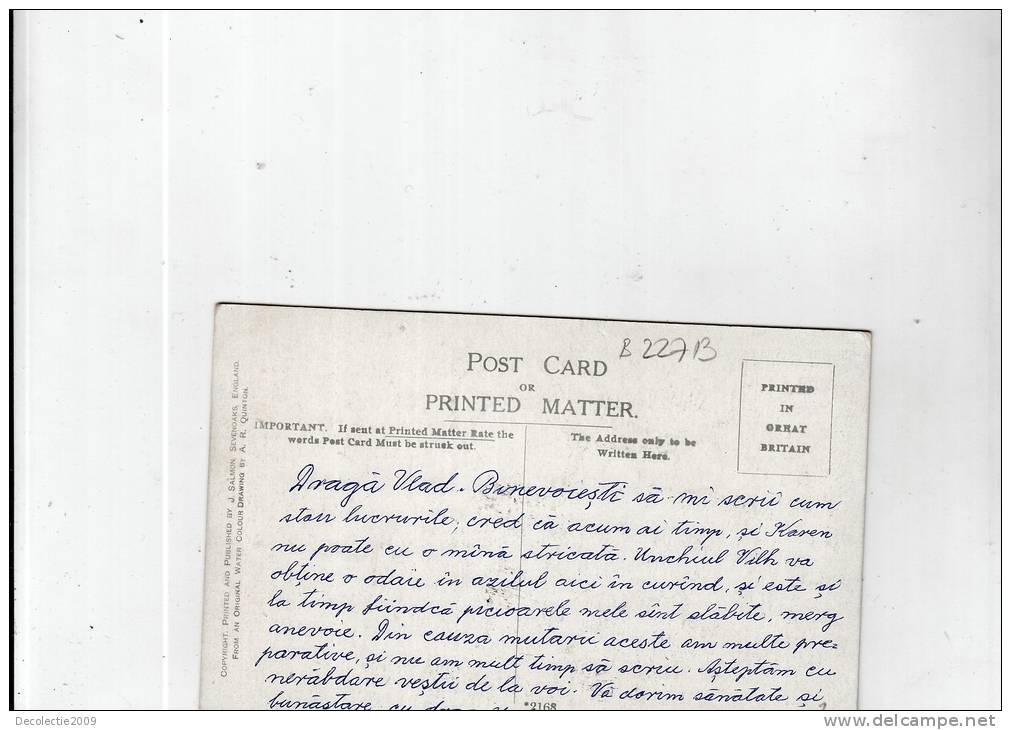 B 227B
POST CARD
OR
PRINTED MATTER.
PRINTED
IN
GREAT
BRITAIN
IMPORTANT. If sent at Printed Matter Rate the
words Post Card Must be struck out.
The Address only to be
Written Here.
COPYRIGHT. PRINTED AND PUBLISHED BY J. SALMON, SEVENOAKS, ENGLAND.
FROM AN ORIGINAL WATER COLOUR DRAWING BY A. R. QUINTON.
Dragă Vlad. Binevoiești să-mi scrii cum
stau lucrurile, cred că acum ai timp, și Karen
nu poate cu o mînă stricată. Unchiul Vilh va
obține o odaie în azilul aici în curînd, și este și
la timp fiindcă picioarele mele sînt slăbite, merg
anevoie. Din cauza mutarii aceste am multe pre=
parative, și nu am mult timp să scriu. Așteptăm cu
nerăbdare veștii de la voi. Vă dorim sănătate și
bunăstare, cu
*2168
Decolectie2009
www.delcampe.net